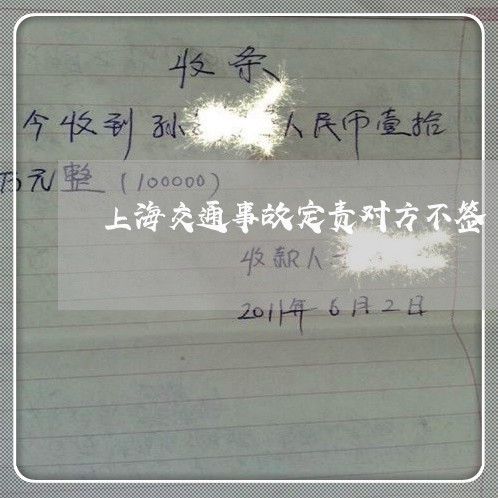 收条
今收到孙 人民币壹拾
万元整（100000）
上海交通事故定责对方不签
收款人
2011年6月2日